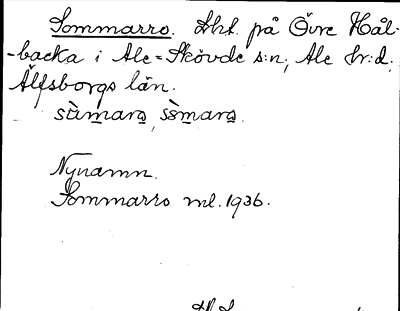 Sommarro. Lht. på Övre Hål-
-backa i Ale-Skövde s:n, Ale hr:d,
Älfsborgs län.
sùmarọ, sòmarọ.
Nynamn.
Sommarro ml. 1936.